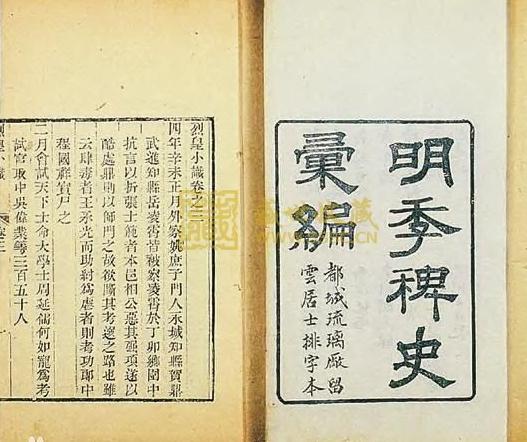 明季稗史
彙編
都城琉璃厰留
雲居士排字本
烈皇小識卷之三
四年辛未正月外察姚庶子門人永城知縣賀鼎
武進知縣岳凌霄皆被察凌霄於丁卯鄉闈中
抗言以折張士範者本邑相公惡其强項遂以
酷處鼎則以師門之故欲斷其考選之路也雖
云肆毒者王永光而助紂為虐者則考功郎中
程國祥實尸之
二月會試天下士命大學士周延儒何如寵為考
試官取中吳偉業等三百五十人
烈皇小識